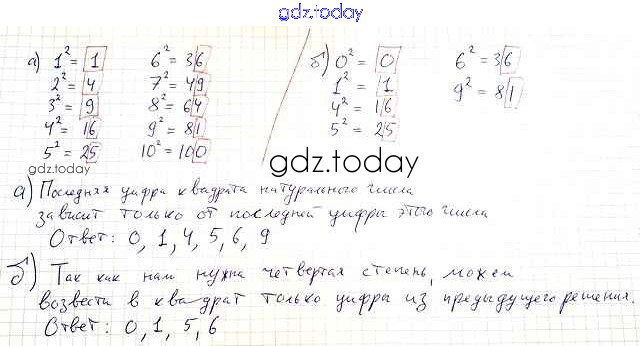 gdz.today
а) 1² = 1 6² = 36
2² = 4 7² = 49
3² = 9 8² = 64
4² = 16 9² = 81
5² = 25 10² = 100
б) 0² = 0 6² = 36
1² = 1 9² = 81
4² = 16
5² = 25
gdz.today
gdz.today
а) Последняя цифра квадрата натурального числа
зависит только от последней цифры этого числа
Ответ: 0, 1, 4, 5, 6, 9
б) Так как нам нужна четвертая степень, можем
возвести в квадрат только цифра из предыдущего решения.
Ответ: 0, 1, 5, 6